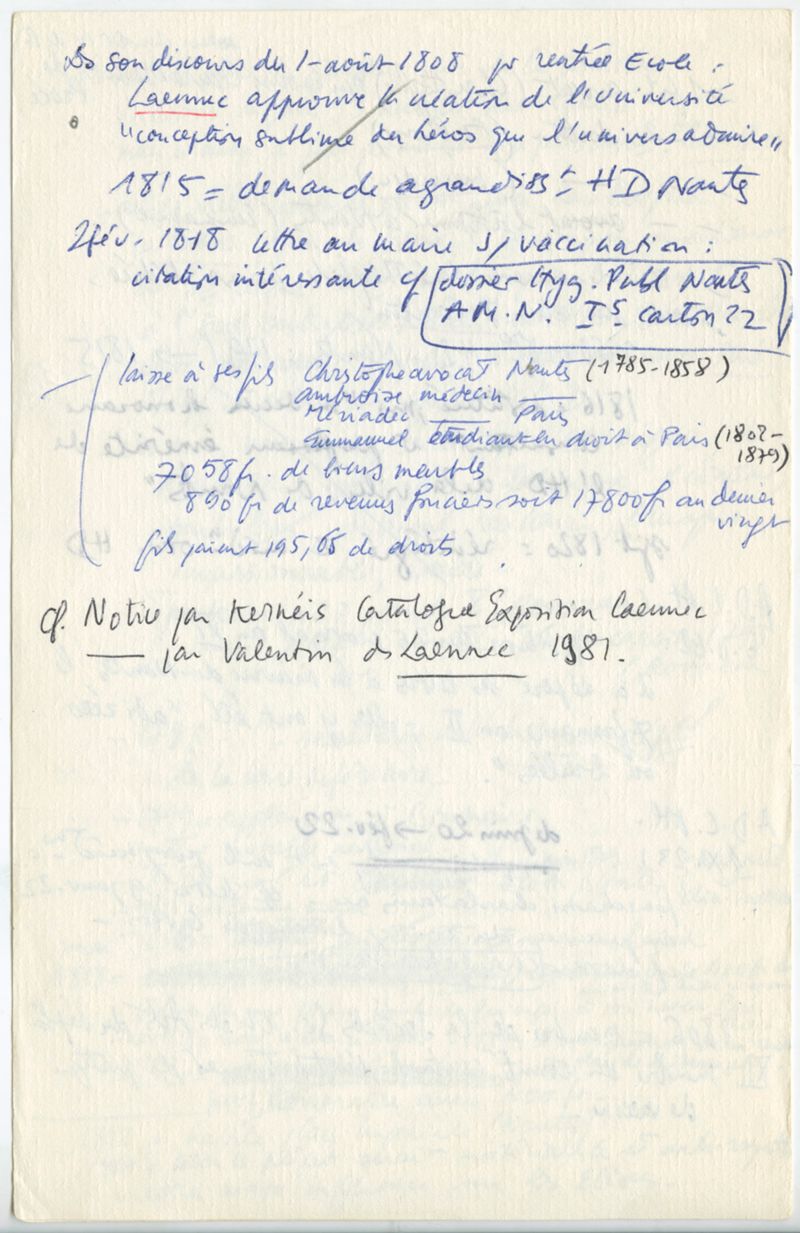 Ds son discours du 1-août 1808 pr rentrée Ecole :
Laennec approuve la création de l'Université
"conception sublime du héros que l'univers admire"
1815 = demande agrandisst HD Nantes
2 fév. 1818 lettre au maire s/ vaccination :
citation intéressante cf dossier Hyg. Publ Nantes
A.M.N. I5 carton 22
laisse à ses fils Christophe avocat Nantes (1785-1858)
Ambroise médecin —
Mériadec — Paris
Emmanuel étudiant en droit à Paris (1802-
1879)
7058 fr. de biens meubles
890 fr de revenus fonciers soit 17800 fr au denier
vingt
fils paient 195,65 de droits
cf. Notice par Kernéis Catalogue Exposition Laennec
— par Valentin ds Laennec 1981.